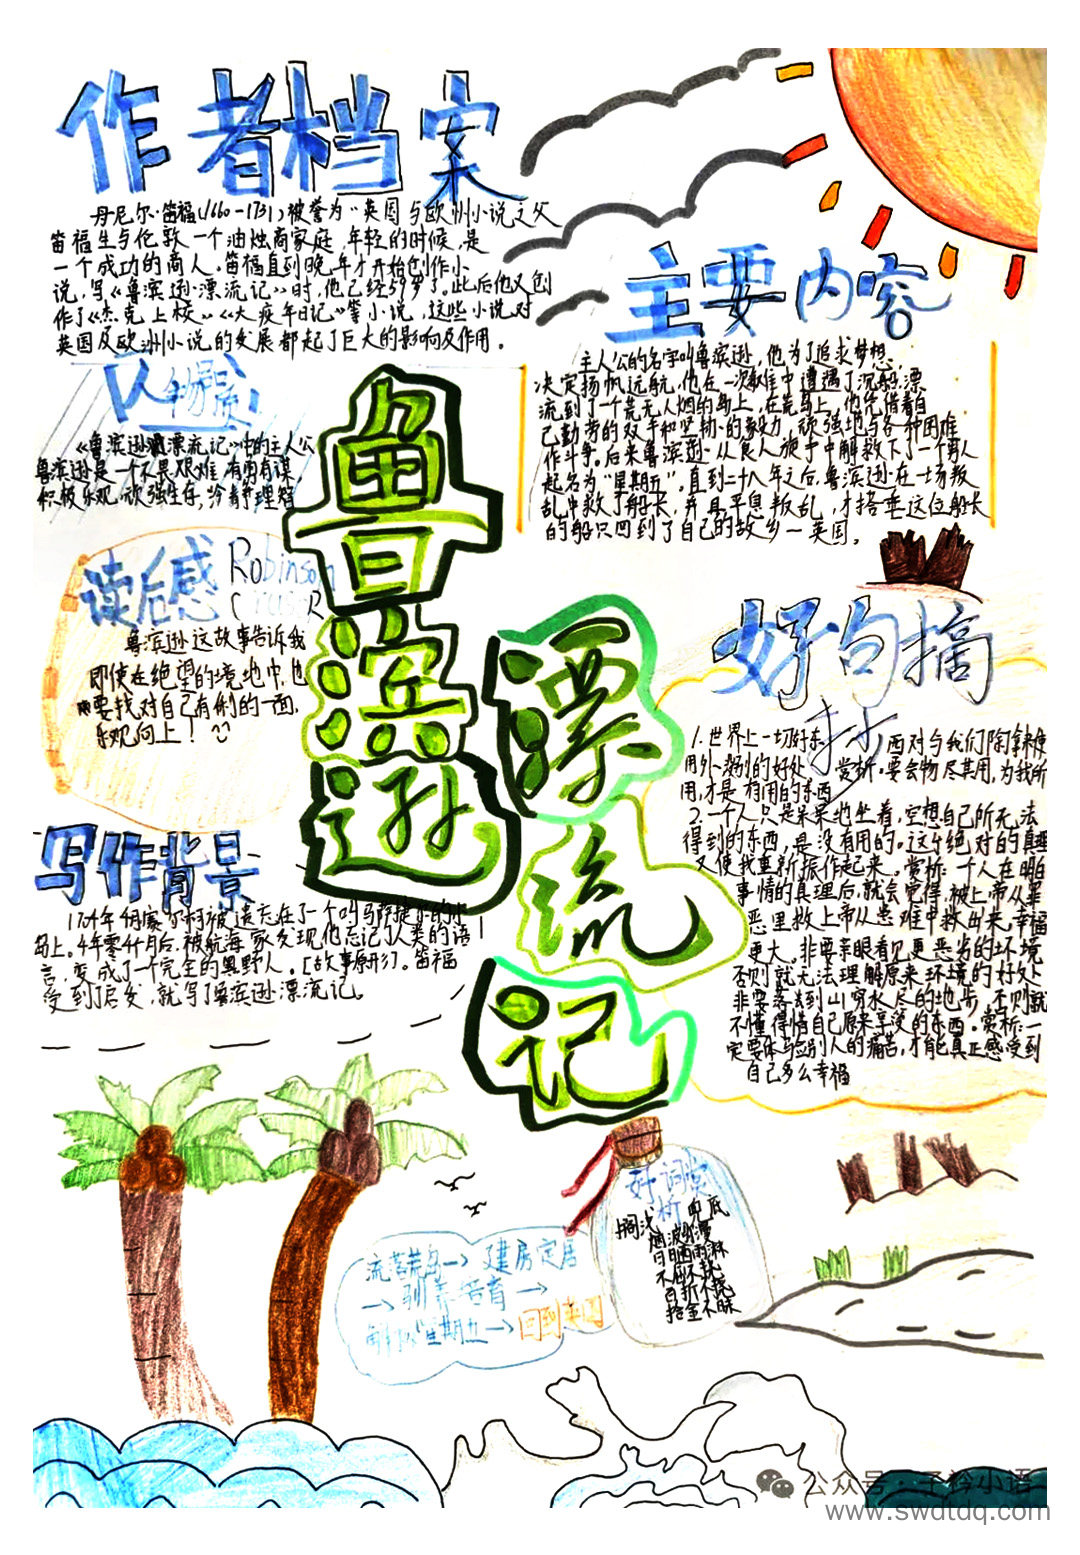 作者档案
丹尼尔·笛福(1660-1731)被誉为“英国与欧州小说之父
笛福生与伦敦一个油烛商家庭,年轻的时候,是
一个成功的商人。笛福直到晚年才开始创作小
说,写《鲁滨逊漂流记》时,他已经59岁了。此后他又创
作了《杰克上校》《大疫年日记》等小说,这些小说对
英国及欧洲小说的发展都起了巨大的影响及作用。
主要内容
主人公的名字叫鲁滨逊,他为了追求梦想,
决定扬帆远航,他在一次航海中遭遇了沉船,漂
流到了一个荒无人烟的岛上,在荒岛上,他凭借着自
己勤劳的双手和坚韧的毅力,顽强地与各种困难
作斗争。后来鲁滨逊从食人族手中解救下了一个野人
起名为“星期五”,直到二十八年之后,鲁滨逊在一场叛
乱中救了船长,并且平息叛乱,才搭乘这位船长
的船只回到了自己的故乡一英国。
人物
《鲁滨逊漂流记》中的主人公
鲁滨逊是一个不畏艰难,有勇有谋,
积极乐观,顽强生存,冷静理智
鲁滨逊
漂流记
读后感
Robinson
Crusoe
鲁滨逊这故事告诉我
即使在绝望的境地中,也
要找对自己有俐的一面,
乐观向上!
好句摘抄
1.世界上一切好东西对与我们除拿来使
用外,没别的好处 赏析:要会物尽其用,为我所
用,才是有用的东西
2.一个人只是呆呆地坐着,空想自己所无法
得到的东西,是没有用的。这个绝对的真理
又使我重新振作起来。赏析:一个人在明白
事情的真理后,就会觉得,被上帝从罪
恶里救上帝从患难中救出来,幸福
更大。非要亲眼看见更恶劣的环境
否则就无法理解原来环境的好处
非要落到山穷水尽的地步,不则就
不懂得惜自己原来享受的东西。赏析:一
定要体验别人的痛苦,才能真正感受到
自己多么幸福
写作背景
1704年
岛上。4年零4个月后,被航海家发现他忘记了人类的语
言,变成了一个完全的野人。[故事原形]。笛福
受到启发,就写了鲁滨逊漂流记。
好词赏析
搁浅 兜底
烟波弥漫
日晒雨淋
不屈不挠
百折不挠
拾金不昧
流落荒岛→建房定居
→驯养培育→
解救“星期五→回到英国
公众号·子衿小语
www.swdtdq.com